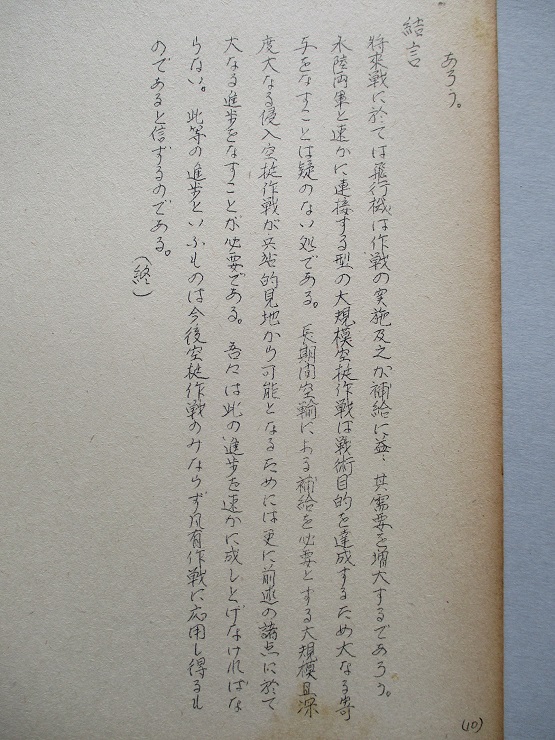 あろう。
結言
将来戦に於ては飛行機は作戦の実施及之が補給に益々其需要を増大するであろう。
水陸両軍と速かに連接する型の大規模空挺作戦は戦術目的を達成するため大なる寄
与をなすことは疑のない処である。長期間空輸による補給を必要とする大規模且深
度大なる侵入空挺作戦が兵站的見地から可能となるためには更に前述の諸点に於て
大なる進歩をなすことが必要である。吾々は此の進歩を速かに成しとげなければな
らない。此等の進歩といふものは今後空挺作戦のみならず凡有作戦に応用し得るも
のであると信ずるのである。
(終)
(10)